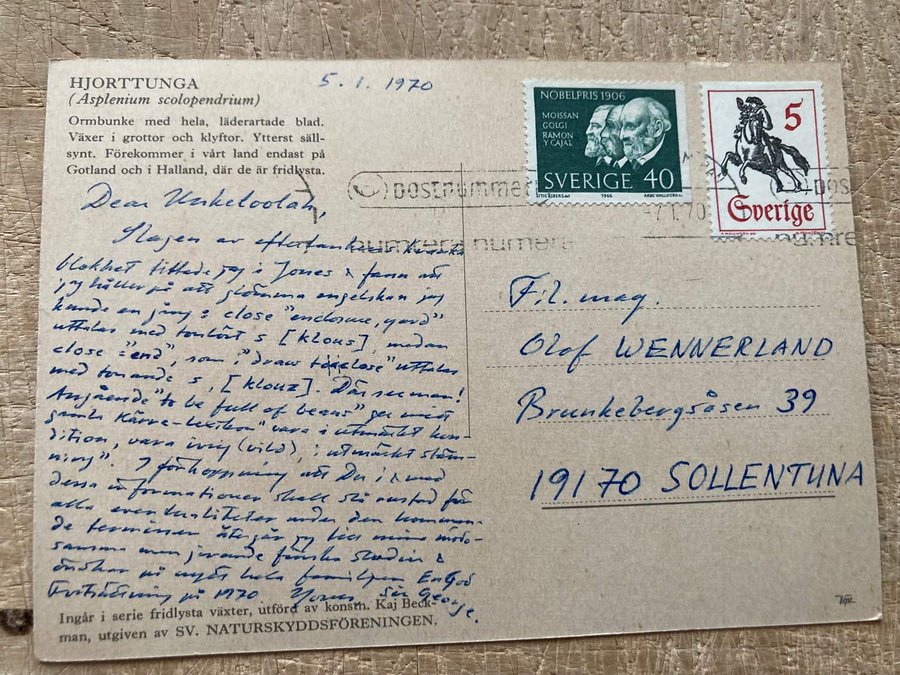 HJORTTUNGA
(Asplenium scolopendrium)
Ormbunke med hela, läderartade blad.
Växer i grottor och klyftor. Ytterst säll-
synt. Förekommer i vårt land endast på
Gotland och i Halland, där de är fridlysta.
5.1.1970
NOBELPRIS 1906
MOISSAN
GOLGI
RAMON
Y CAJAL
SVERIGE 40
1966
5
Sverige
postnummer
numrera numrera
Dear
Slagen av
blokket tittade jag i Jones & fann att
jag håller på att glömma engelskan jag
kunde en gång: close "enclosure, yard"
uttalas med tonlöst s [klous], medan
close = "end", som i "draw to a close" uttalas
med tonande s, [klouz]. Där ser man!
Angående "to be full of beans" ger mitt
gamla Kärre-lexikon "vara i utmärkt kon-
dition, vara ivrig (vild), i utmärkt stäm-
ning". I förhoppning att Du i och med
dessa informationer skall stå rustad för
alla eventualiteter under den komman-
de terminen återgår jag till mina mödo-
samma men givande finska studier &
önskar på nytt hela familjen En God
Fortsättning på 1970. Yours, Sir George.
Fil. mag.
Olof WENNERLAND
Brunkebergsåsen 39
19170 SOLLENTUNA
Ingår i serie fridlysta växter, utförd av konstn. Kaj Beck-
man, utgiven av SV. NATURSKYDDSFÖRENINGEN.